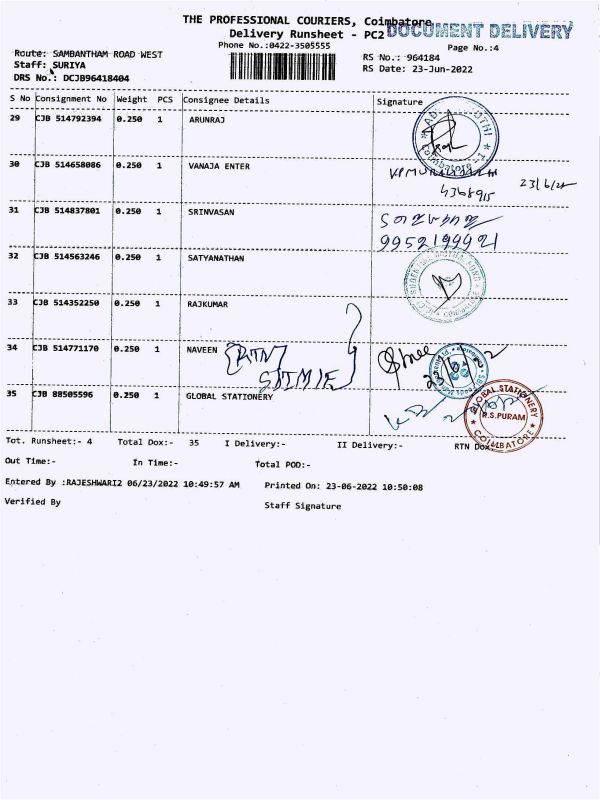 THE PROFESSIONAL COURIERS, Coimbatore
DOCUMENT DELIVERY
Delivery Runsheet - PC2
Phone No.:0422-3505555
Page No.:4
Route: SAMBANTHAM ROAD WEST
RS No.: 964184
Staff: SURIYA
RS Date: 23-Jun-2022
DRS No.: DCJB96418404
S No Consignment No Weight PCS Consignee Details Signature
29 CJB 514792394 0.250 1 ARUNRAJ
30 CJB 514658086 0.250 1 VANAJA ENTER
23/6/22
31 CJB 514837801 0.250 1 SRINVASAN
9952199921
32 CJB 514563246 0.250 1 SATYANATHAN
33 CJB 514352250 0.250 1 RAJKUMAR
34 CJB 514771170 0.250 1 NAVEEN
RTN
35 CJB 88505596 0.250 1 GLOBAL STATIONERY
GLOBAL STATIONERY
R.S.PURAM
COIMBATORE
Tot. Runsheet:- 4 Total Dox:- 35 I Delivery:- II Delivery:- RTN Dox
Out Time:- In Time:- Total POD:-
Entered By :RAJESHWARI2 06/23/2022 10:49:57 AM Printed On: 23-06-2022 10:50:08
Verified By Staff Signature